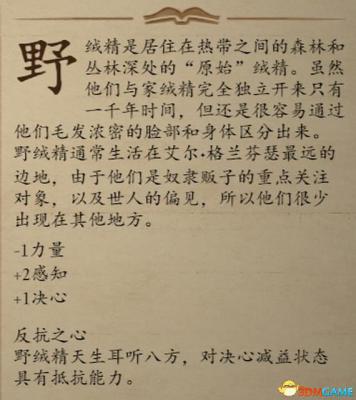 野绒精是居住在热带之间的森林和
丛林深处的“原始”绒精。虽然
他们与家绒精完全独立开来只有
一千年时间，但还是很容易通过
他们毛发浓密的脸部和身体区分出来。
野绒精通常生活在艾尔·格兰芬瑟最远的
边地，由于他们是奴隶贩子的重点关注
对象，以及世人的偏见，所以他们很少
出现在其他地方。
-1力量
+2感知
+1决心
反抗之心
野绒精天生耳听八方，对决心减益状态
具有抵抗能力。
3DMGAME